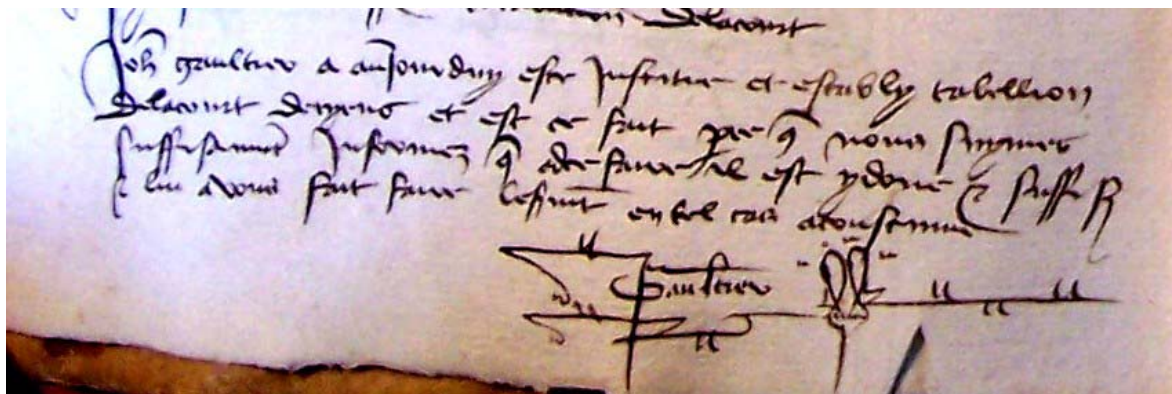 delacourt
Joh gaultier a aujourduy este Institue et estably tabellion
delacourt deyens et est ce fait par q nous summes
suffisamt Informez q ad ce faire il est ydone & suff
& luy avons fait faire le sermt en tel cas acoustume
Gaultier